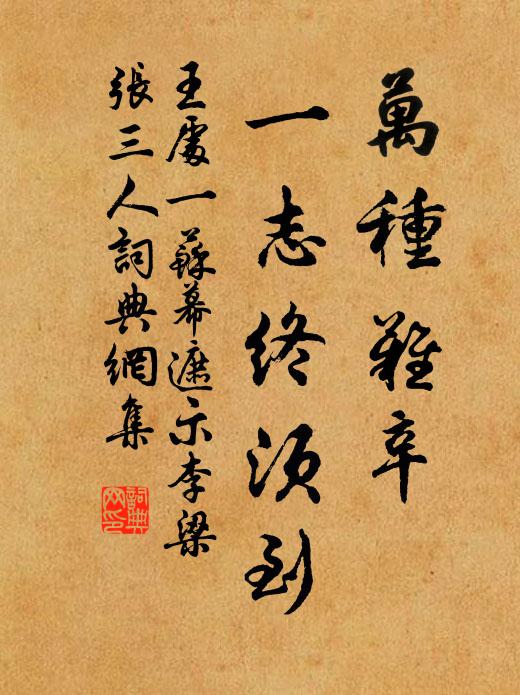 萬種難辛
一志終須到
王處一蘇幕遮示李梁
張三人詞典網集
詞典
网印